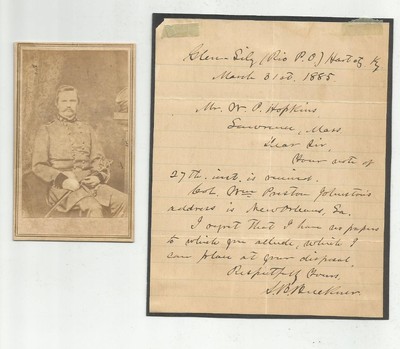 Glen Lily (Rio P.O.) Hart Co., Ky.
March 31st, 1885
Mr. W. P. Hopkins
Lawrence, Mass.
Dear Sir,
Your note of
27th. inst. is received.
Col. Wm Preston Johnston's
address is New Orleans, La.
I regret that I have no papers
to which you allude, which I
can place at your disposal.
Respectfully Yours,
S. B. Buckner.